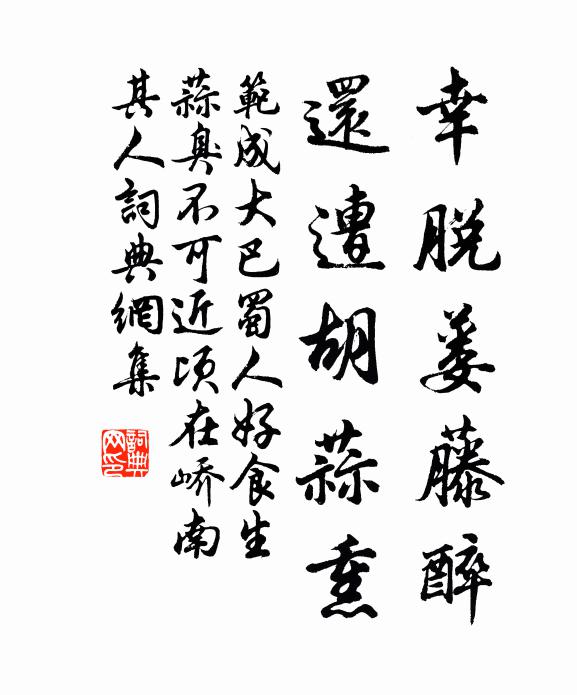 幸脫蒌藤醉
還遭胡蒜熏
範成大巴蜀人好食生
蒜臭不可近頃在嶠南
其人詞典網集
詞典
网印